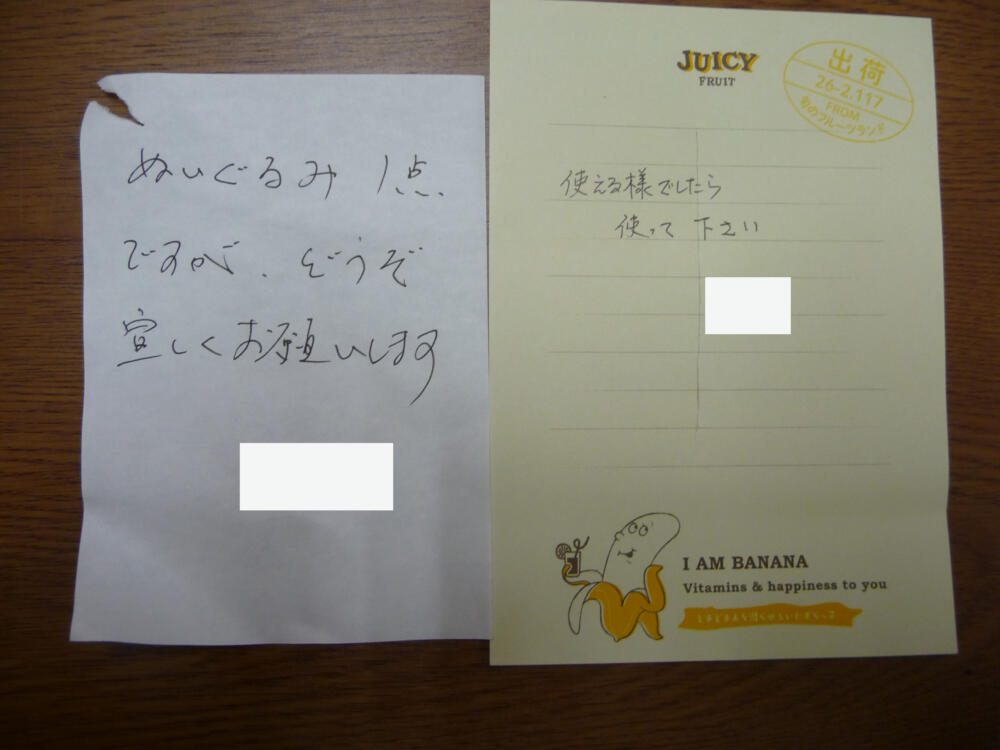 ぬいぐるみ 1点
ですが、どうぞ
宜しくお願いします
JUICY
FRUIT
出荷
26-2.117
FROM
使える様でしたら
使って下さい
I AM BANANA
Vitamins & happiness to you